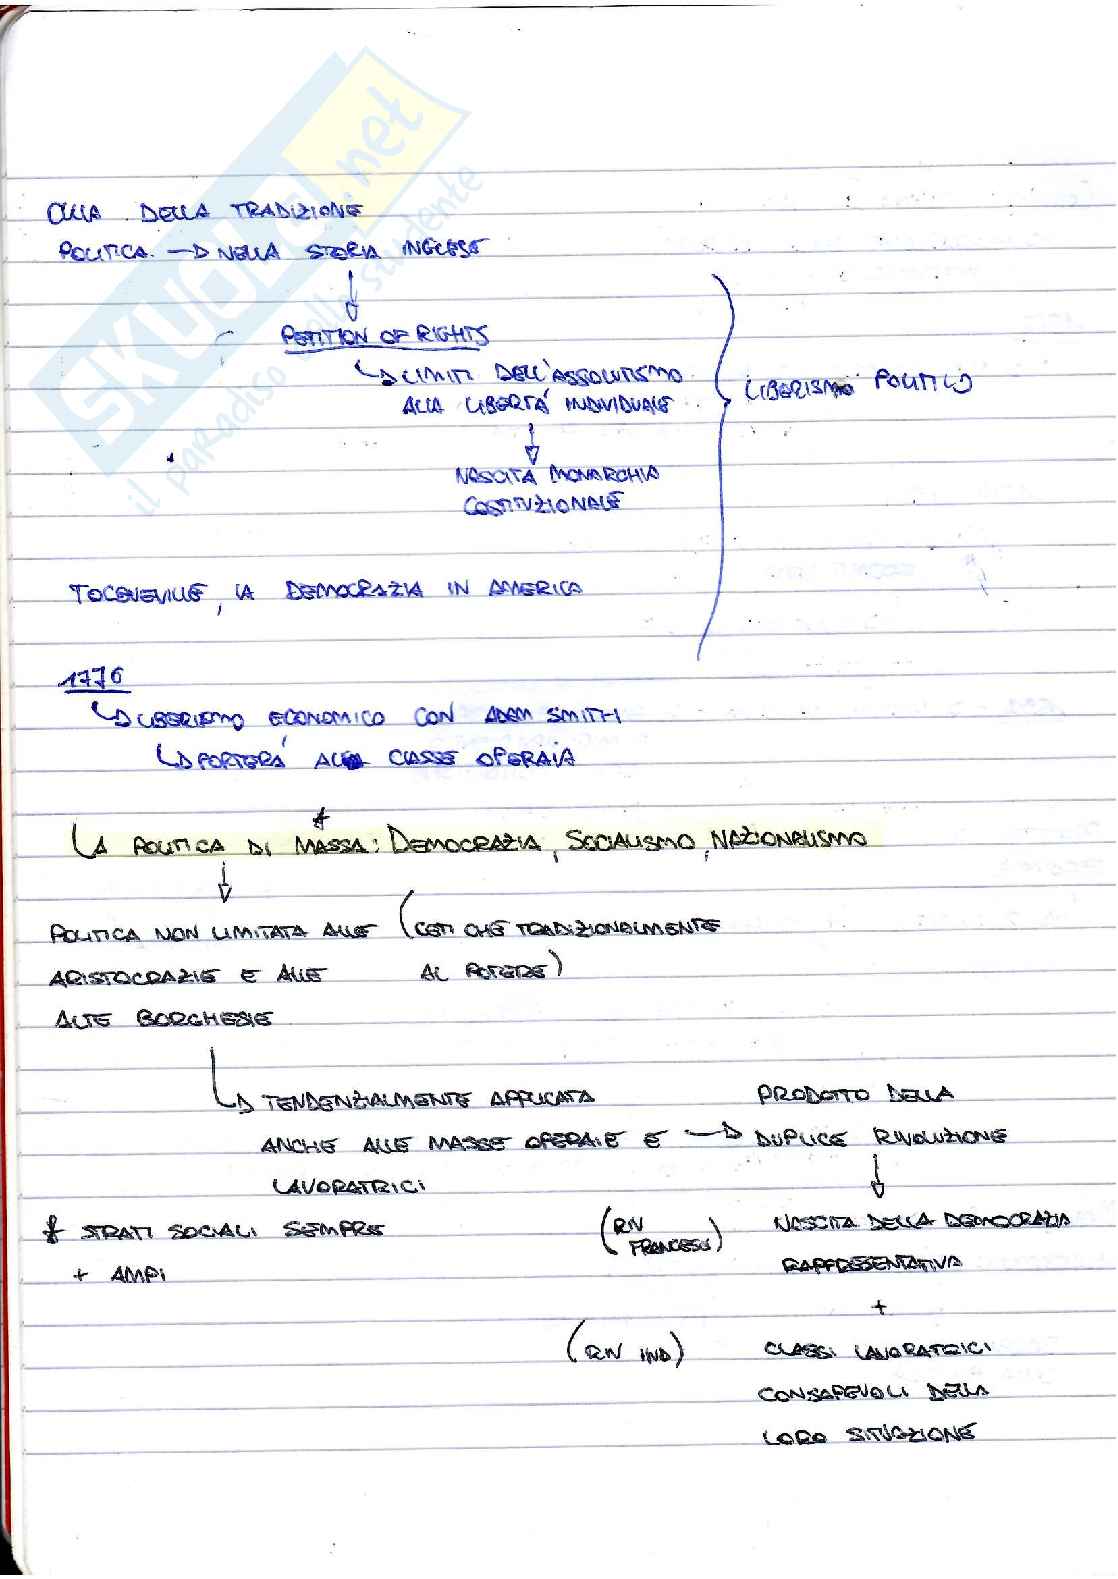 CULLA DELLA TRADIZIONE
POLITICA → NELLA STORIA INGLESE
PETITION OF RIGHTS
LIMITI DELL'ASSOLUTISMO
ALLA LIBERTÁ INDIVIDUALE
LIBERISMO POLITICO
NASCITA MONARCHIA
COSTITUZIONALE
TOCQUEVILLE, LA DEMOCRAZIA IN AMERICA
1776
LIBERISMO ECONOMICO CON ADAM SMITH
PORTERÁ ALLA CLASSE OPERAIA
LA POLITICA DI MASSA*: DEMOCRAZIA, SOCIALISMO, NAZIONALISMO
POLITICA NON LIMITATA ALLE (CETI CHE TRADIZIONALMENTE
ARISTOCRAZIE E ALLE AL POTERE)
ALTE BORGHESIE
TENDENZIALMENTE APPLICATA
ANCHE ALLE MASSE OPERAIE E →
LAVORATRICI
PRODOTTO DELLA
DUPLICE RIVOLUZIONE
* STRATI SOCIALI SEMPRE
+ AMPI
(RIV FRANCESE)
NASCITA DELLA DEMOCRAZIA
RAPPRESENTATIVA
+
(RIV IND)
CLASSI LAVORATRICI
CONSAPEVOLI DELLA
LORO SITUAZIONE
SKUOLA.net
il paradiso dello studente